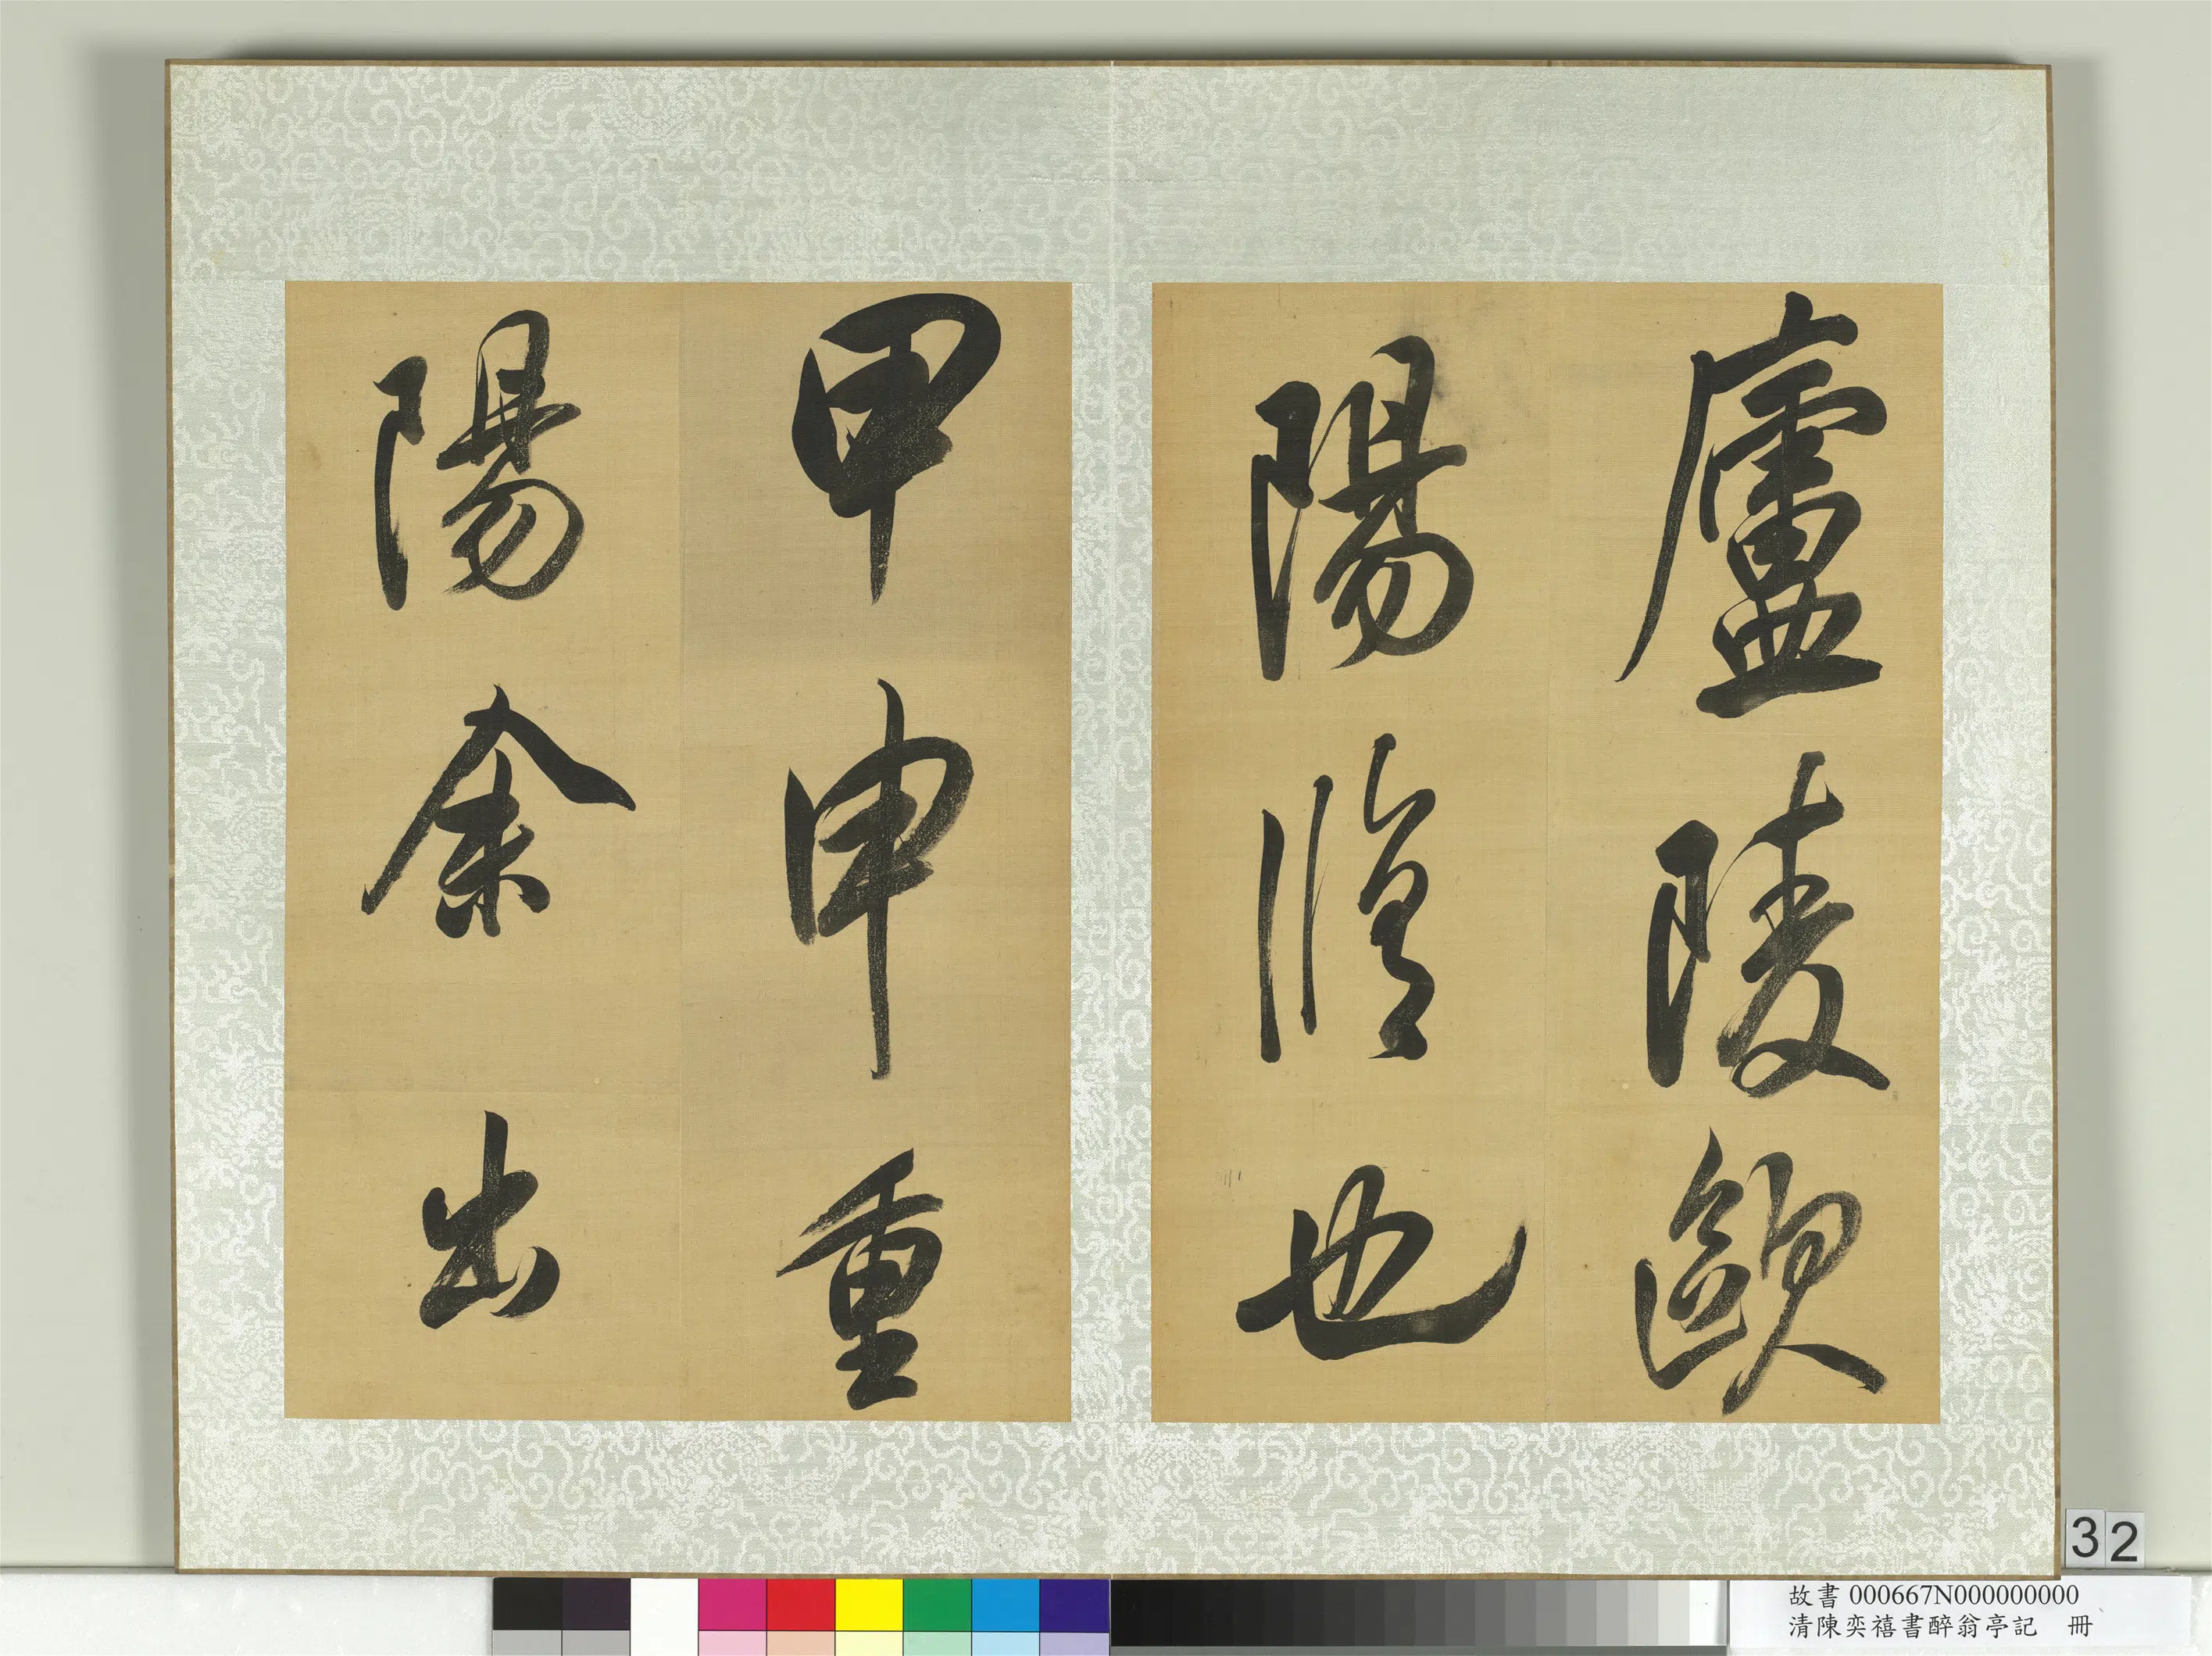 廬陵歐
陽脩也
甲申重
陽余出
32
故書 000667N000000000
清陳奕禧書醉翁亭記 冊